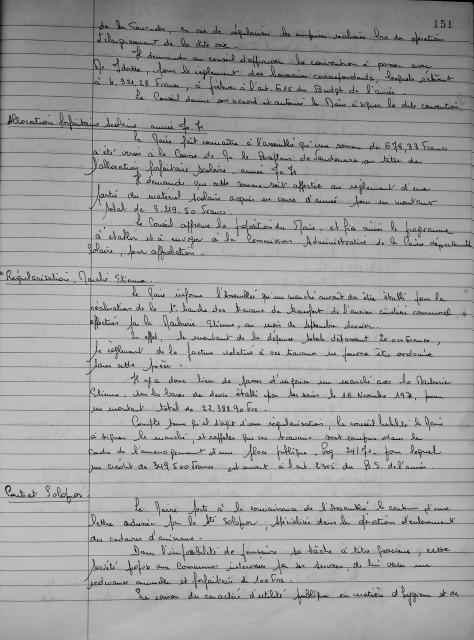 151
de la Gourade, en vue de régulariser les emprises réalisées lors des opérations
d'élargissement de la dite voie.
Il demande au conseil d'approuver la convention à passer avec
M. pour le règlement des honoraires correspondants, lesquels s'élèvent
à 4.321,28 Francs, à prélever à l'art 615 du Budget de l'année.
Le Conseil donne son accord et autorise le Maire à signer la dite convention
Allocation forfaitaire scolaire année 70.71
Le Maire fait connaître à l'assemblée qu'une somme de 678,33 Francs
a été versée à la Caisse de M. le Percepteur de au titre de
l'allocation forfaitaire scolaire - année 70.71
Il demande que cette somme soit affectée au règlement d'une
partie du matériel scolaire acquis en cours d'année pour un montant
total de 3.219,50 Francs.
Le Conseil approuve la proposition du Maire, et fixe ainsi le programme
à établir et à envoyer à la Commission Administrative de la Caisse départementale
scolaire, pour approbation.
Régularisation Marché Etienne
Le Maire informe l'Assemblée qu'un marché aurait dû être établi pour la
réalisation de la 1e tranche des travaux de transfert de l'ancien cimetière communal
effectués par la Marbrerie Etienne, au mois de Septembre dernier.
En effet, le montant de la dépense totale dépassant 20.000 Francs,
le règlement de la facture relative à ces travaux ne pourra être ordonné
sans cette pièce.
Il y a donc lieu de passer d'urgence un marché avec la Marbrerie
Etienne, sur les bases du devis établi par ses soins le 16 Novembre 1971, pour
un montant total de 22.388,90 Frs.
Compte tenu qu'il s'agit d'une régularisation, le conseil habilite le Maire
à signer le marché, et rappelle que ces travaux sont compris dans le
cadre de l'aménagement d'une place publique - Prog 241/70 - pour lequel
un crédit de 349.500 Francs est ouvert à l'art 2305 du B.S. de l'année
Contrat Solopor
Le Maire porte à la connaissance de l'Assemblée le contenu d'une
lettre adressée par la Sté Solopor, spécialisée dans la question d'enlèvement
des cadavres d'animaux.
Dans l'impossibilité de poursuivre sa tâche à titre gracieux, cette
société propose aux Communes intéressées par ses services, de lui verser une
redevance annuelle et forfaitaire de 100 Frs.
En raison du caractère d'utilité publique en matière d'hygiène et de